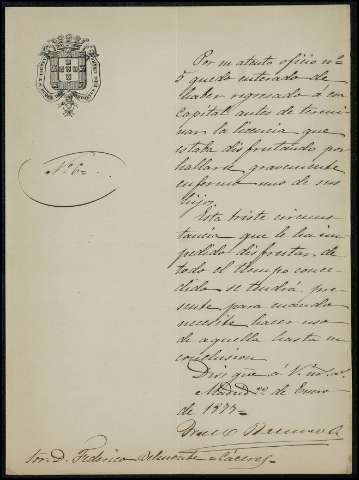 Nº 6.
Por su atento oficio nº
5 quedo enterado de
haber regresado á esa
capital antes de termi-
nar la licencia que
estaba disfrutando por
hallarse gravemente
enfermo uno de sus
hijos.
Esta triste circuns-
tancia que le ha im-
pedido disfrutar de
todo el tiempo conce-
dido se tendrá pre-
sente para cuando
necesite hacer uso
de aquella hasta su
conclusion.
Dios gue á V. ms. as.
Madrid 22 de Enero
de 1877.
Sor. D. Federico Belmonte = Cáceres =